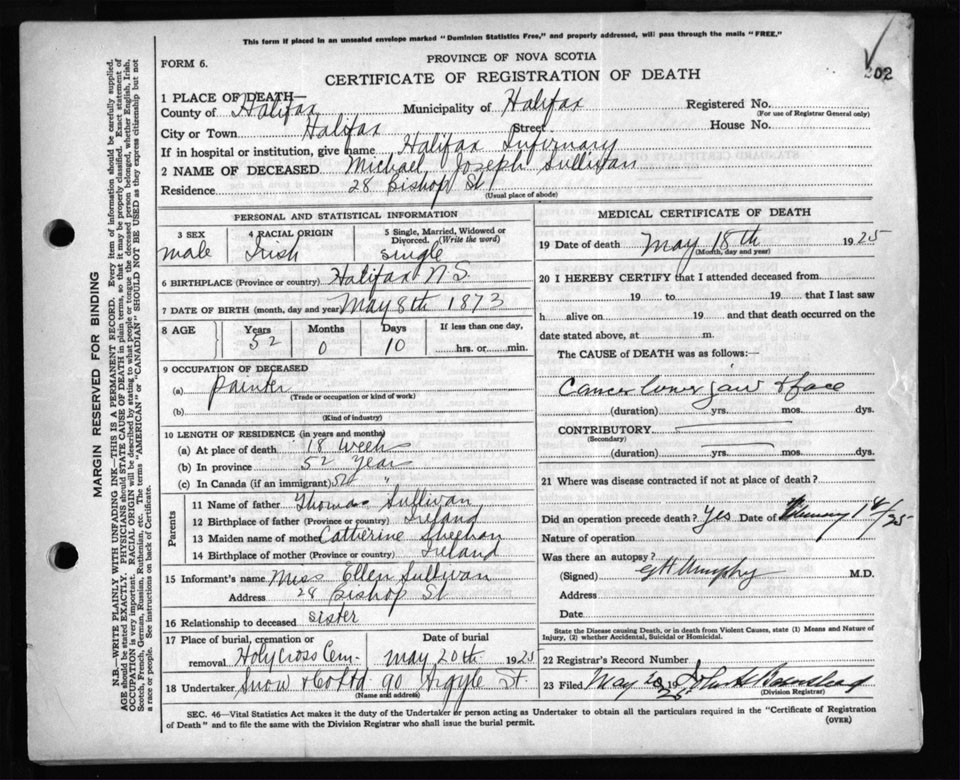 This form if placed in an unsealed envelope marked "Dominion Statistics Free," and properly addressed, will pass through the mails "FREE."
202
FORM 6.
PROVINCE OF NOVA SCOTIA
CERTIFICATE OF REGISTRATION OF DEATH
1 PLACE OF DEATH—
County of Halifax Municipality of Halifax Registered No.
(For use of Registrar General only)
City or Town Halifax Street House No.
If in hospital or institution, give name Halifax Infirmary
2 NAME OF DECEASED Michael Joseph Sullivan
Residence 28 Bishop St
(Usual place of abode)
PERSONAL AND STATISTICAL INFORMATION
3 SEX 4 RACIAL ORIGIN 5 Single, Married, Widowed or Divorced. (Write the word)
male Irish single
6 BIRTHPLACE (Province or country) Halifax N S
7 DATE OF BIRTH (month, day and year) May 8th 1873
8 AGE Years Months Days If less than one day,
52 0 10 hrs. or min.
9 OCCUPATION OF DECEASED
(a) Painter
(Trade or occupation or kind of work)
(b)
(Kind of industry)
10 LENGTH OF RESIDENCE (in years and months)
(a) At place of death 18 week
(b) In province 52 Year
(c) In Canada (if an immigrant) 52 "
Parents
11 Name of father Thomas Sullivan
12 Birthplace of father (Province or country) Ireland
13 Maiden name of mother Catherine Sheehan
14 Birthplace of mother (Province or country) Ireland
15 Informant's name Miss Ellen Sullivan
Address 28 Bishop St
16 Relationship to deceased sister
17 Place of burial, cremation or Date of burial
removal Holy Cross Cem- May 20th 1925
18 Undertaker Snow & Co Ltd 90 Argyle St.
(Name and address)
MEDICAL CERTIFICATE OF DEATH
19 Date of death May 18th 1925
(Month, day and year)
20 I HEREBY CERTIFY that I attended deceased from
19 to 19 that I last saw
h alive on 19 and that death occurred on the
date stated above, at m.
The CAUSE of DEATH was as follows:—
Cancer lower jaw & face
(duration) yrs. mos. dys.
CONTRIBUTORY
(Secondary)
(duration) yrs. mos. dys.
21 Where was disease contracted if not at place of death?
Did an operation precede death? Yes Date of February 18/25
Nature of operation
Was there an autopsy?
(Signed) Murphy M.D.
Address
Date
State the Disease causing Death, or in death from Violent Causes, state (1) Means and Nature of
Injury, (2) whether Accidental, Suicidal or Homicidal.
22 Registrar's Record Number
23 Filed May 20 1925 John
(Division Registrar)
SEC. 46—Vital Statistics Act makes it the duty of the Undertaker or person acting as Undertaker to obtain all the particulars required in the "Certificate of Registration
of Death" and to file the same with the Division Registrar who shall issue the burial permit.
(OVER)
MARGIN RESERVED FOR BINDING
N.B.—WRITE PLAINLY WITH UNFADING INK—THIS IS A PERMANENT RECORD. Every item of information should be carefully supplied.
AGE should be stated EXACTLY. PHYSICIANS should STATE CAUSE OF DEATH in plain terms, so that it may be properly classified. Exact statement of
OCCUPATION is very important. RACIAL ORIGIN will be described by stating to what people or tongue the deceased person belonged, whether English, Irish,
Scotch, French, German, Russian, Ruthenian, etc. The terms "AMERICAN" or "CANADIAN" SHOULD NOT BE USED as they express citizenship but not
a race or people. See instructions on back of Certificate.